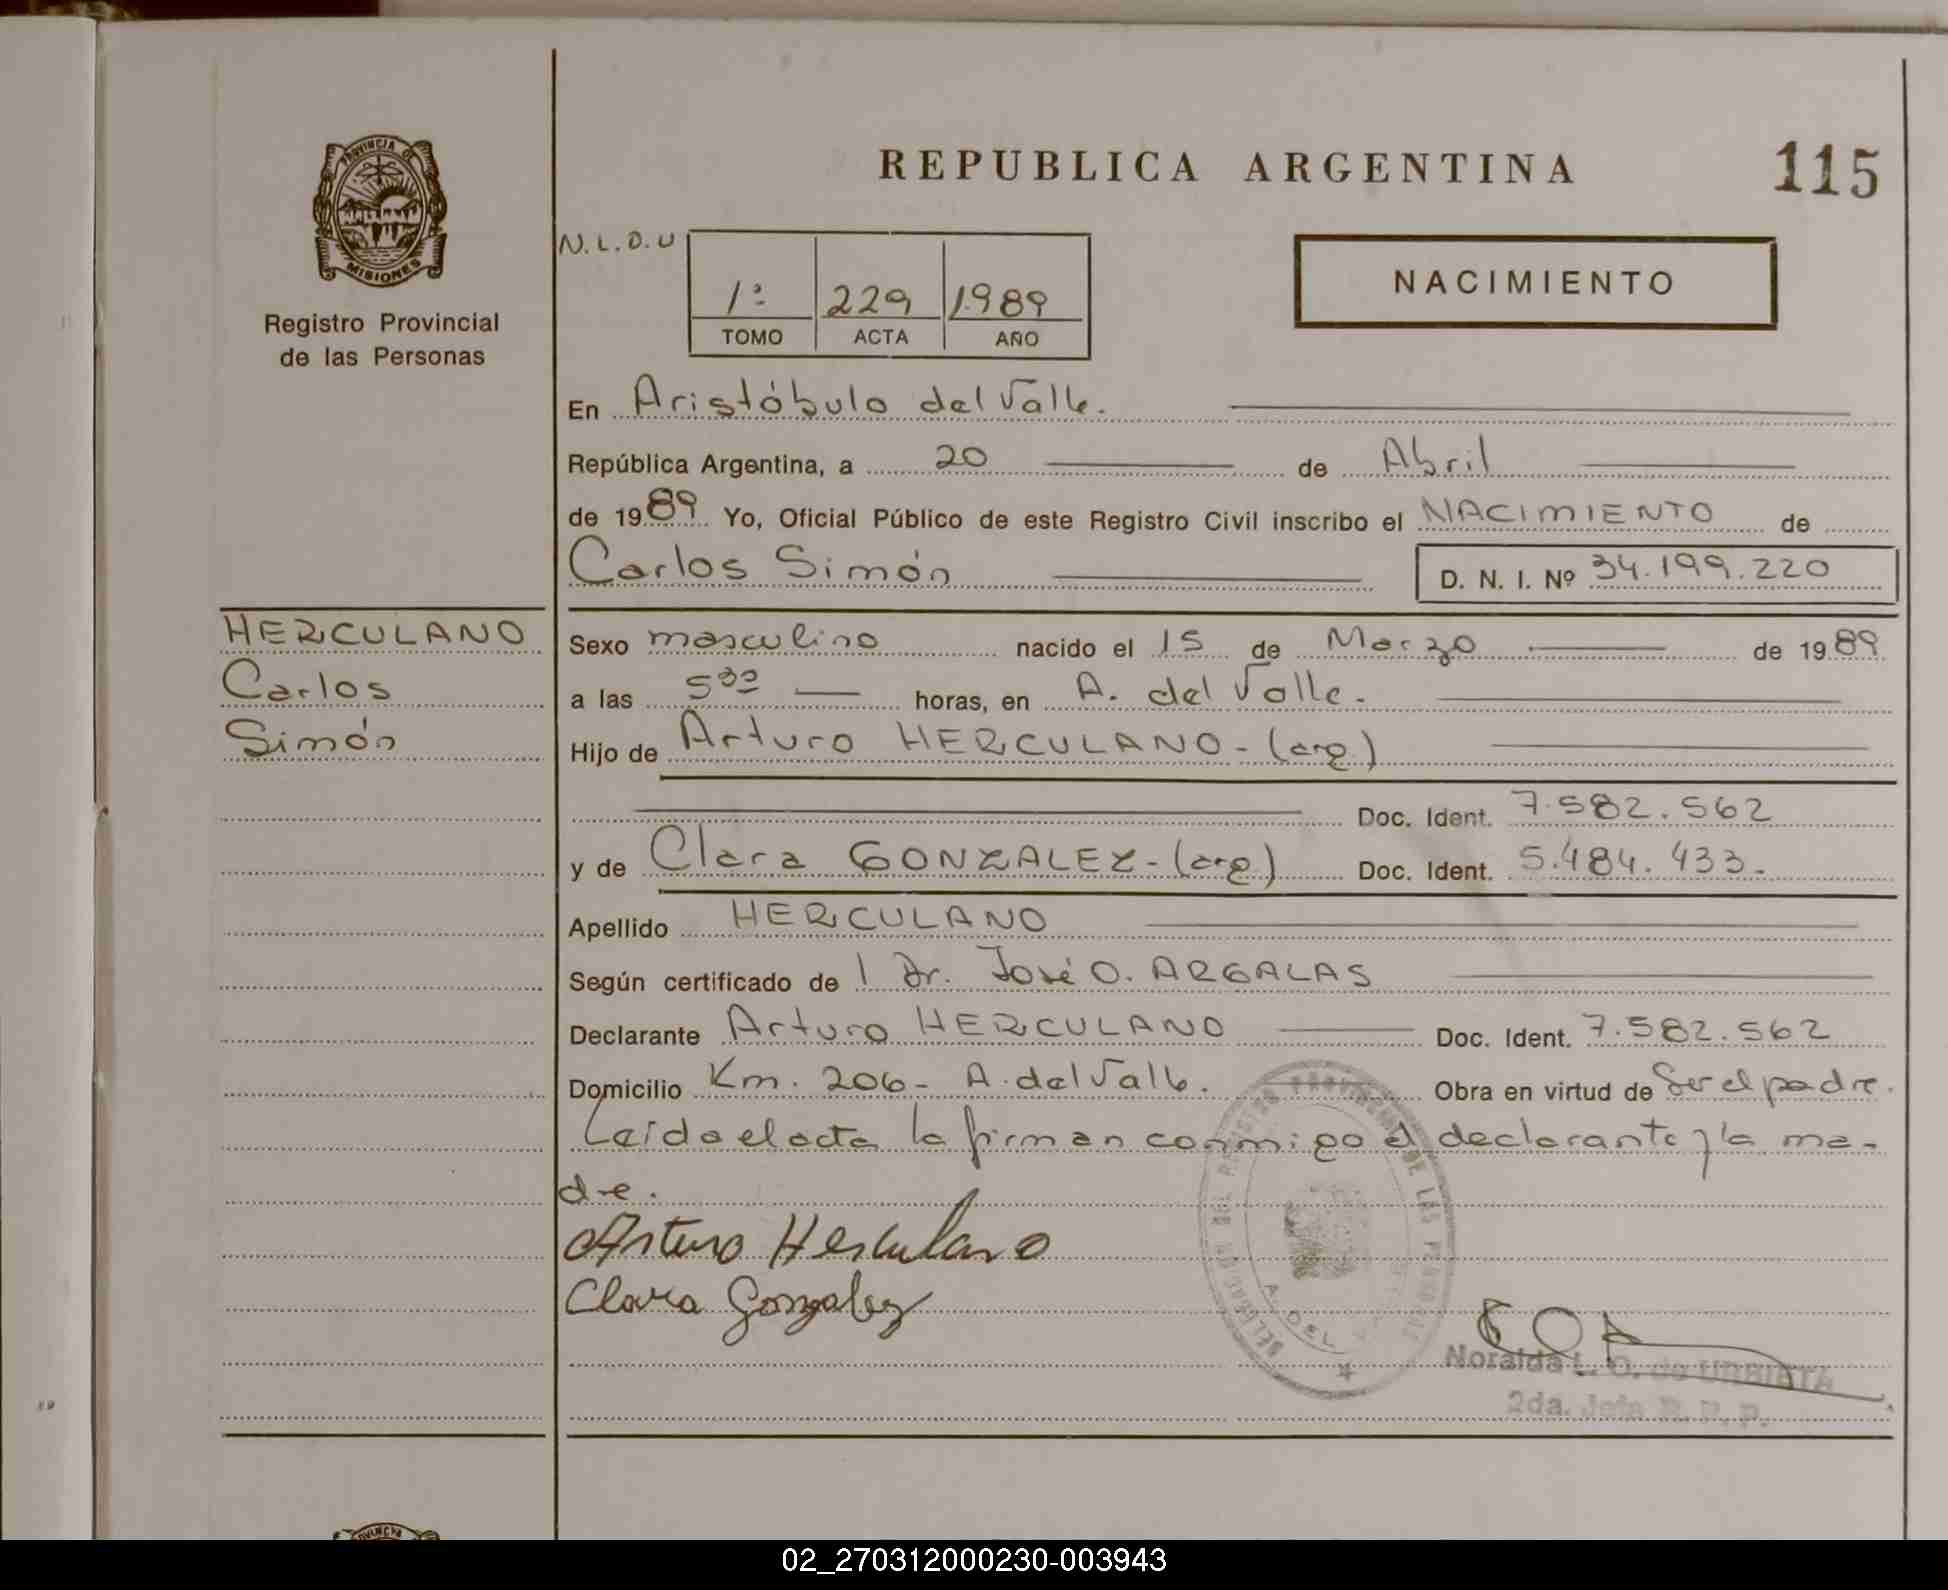 REPUBLICA ARGENTINA
115
PROVINCIA DE
MISIONES
Registro Provincial
de las Personas
N.L.D.U
1º 229 1989
TOMO ACTA AÑO
NACIMIENTO
En Aristóbulo del Valle.
República Argentina, a 20 de Abril
de 1989 Yo, Oficial Público de este Registro Civil inscribo el NACIMIENTO de
Carlos Simón D. N. I. Nº 34.199.220
HERCULANO
Carlos
Simón
Sexo masculino nacido el 15 de Marzo de 1989
a las 5³⁰ horas, en A. del Valle.
Hijo de Arturo HERCULANO - (arg)
Doc. Ident. 7.582.562
y de Clara GONZALEZ - (arg) Doc. Ident. 5.484.433.
Apellido HERCULANO
Según certificado de l Dr. José O. ARGALAS
Declarante Arturo HERCULANO Doc. Ident. 7.582.562
Domicilio Km. 206 - A. del Valle. Obra en virtud de Ser el padre.
Leída el acta la firman conmigo el declarante y la ma-
dre.
Arturo Herculano
Clara Gonzalez
DEL REGISTRO PROVINCIAL DE LAS PERSONAS
A. DEL
Noralda L. O. de URRIETA
2da. Jefa R. P. P.
02_270312000230-003943